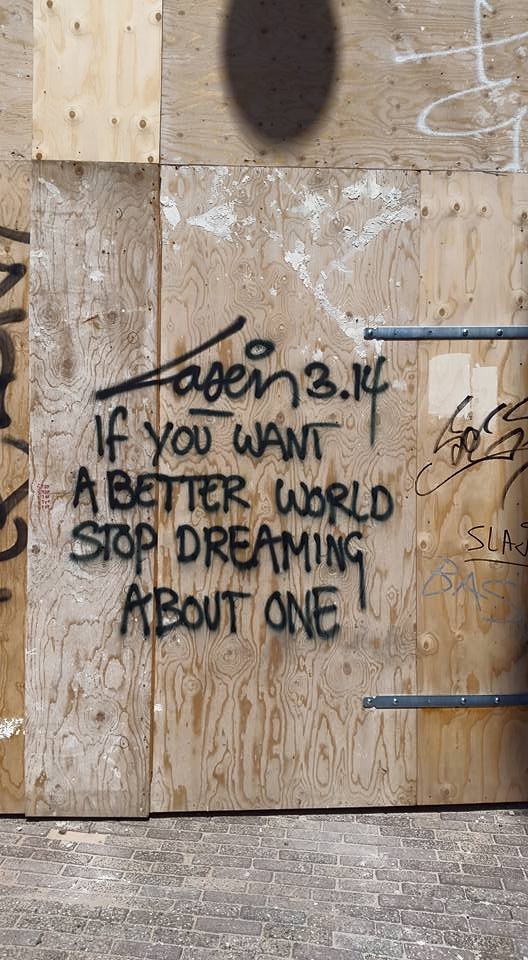 Laser 3.14
IF YOU WANT
A BETTER WORLD
STOP DREAMING
ABOUT ONE